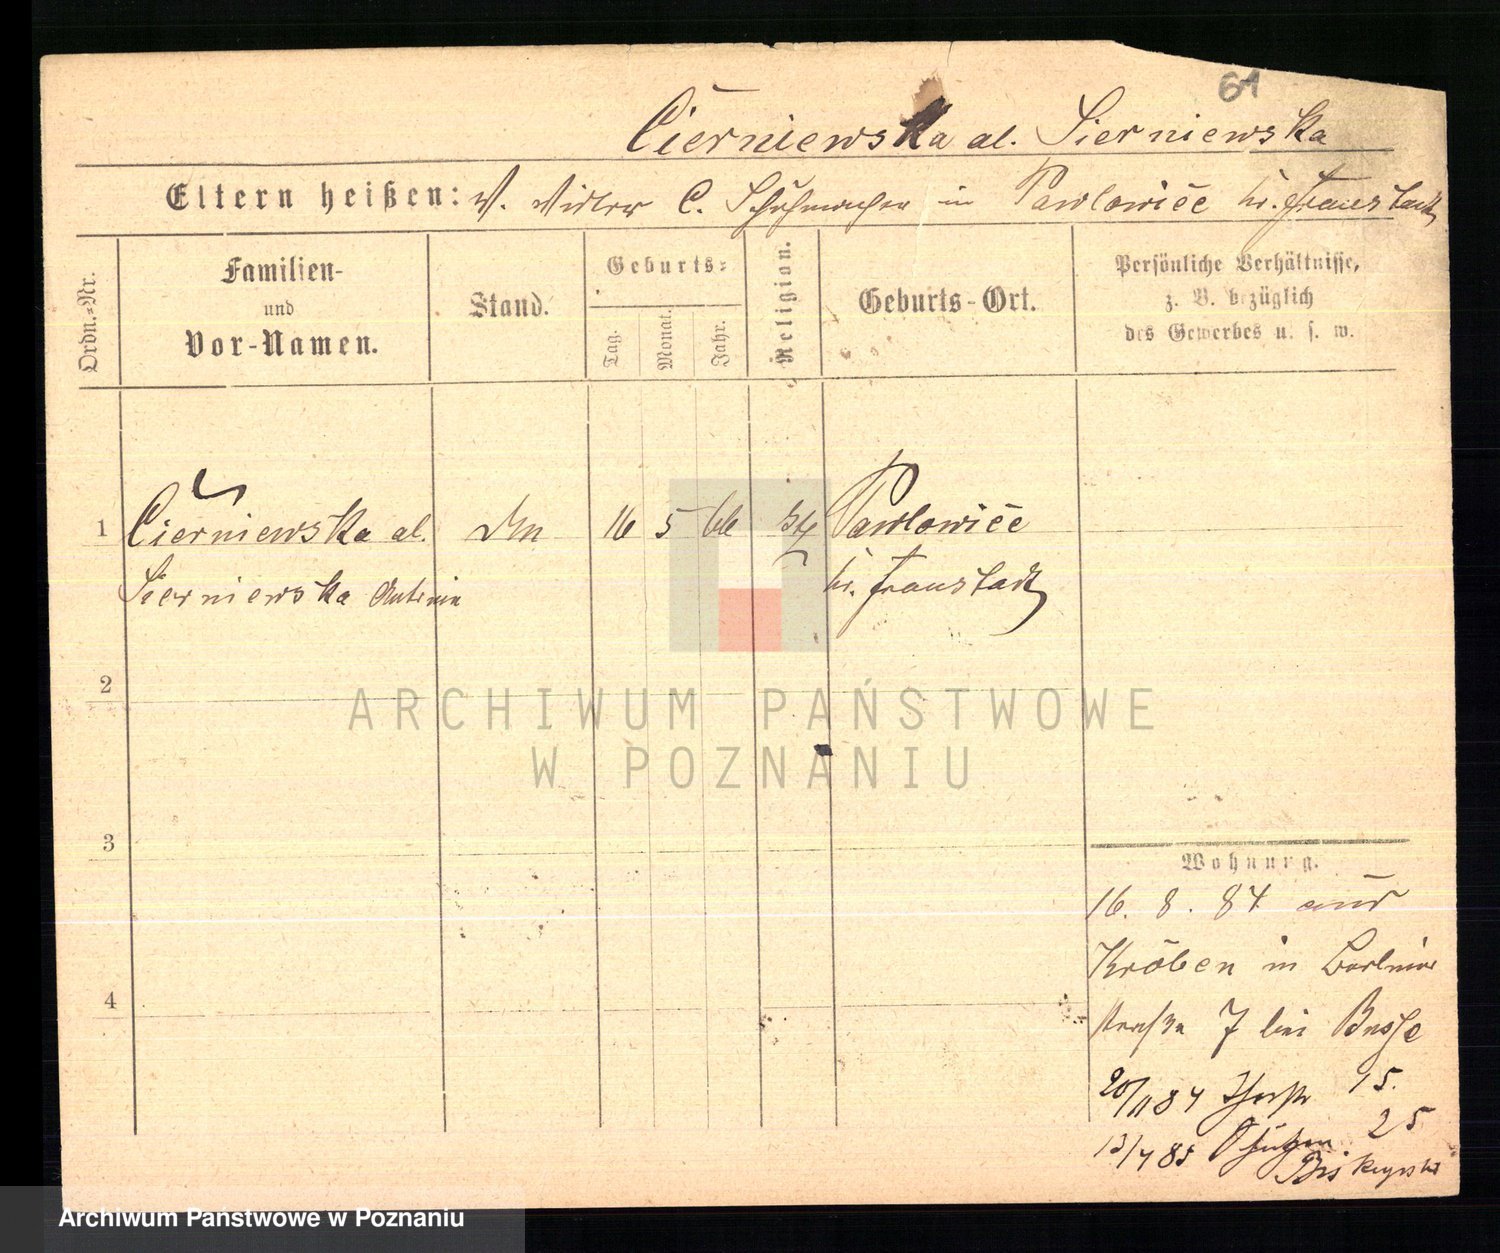 61
Cierniewska al. Sierniewska
Eltern heißen: V. C. Schuhmacher in Pawlowice kr. Fraustadt
Ordn.-Nr.
Familien-
und
Vor-Namen.
Stand.
Geburts-
Tag.
Monat.
Jahr.
Religion.
Geburts-Ort.
Persönliche Verhältnisse,
z. B. bezüglich
des Gewerbes u. s. w.
1 Cierniewska al. 16 5 66 Pawlowice
Sierniewska Antonia kr. Fraustadt
2
ARCHIWUM PAŃSTWOWE
W POZNANIU
3
Wohnung.
16. 8. 84 aus
Kröben in Berliner
straße 7 bei Busse
4
20/11 84 15.
13/4 85 25
Archiwum Państwowe w Poznaniu